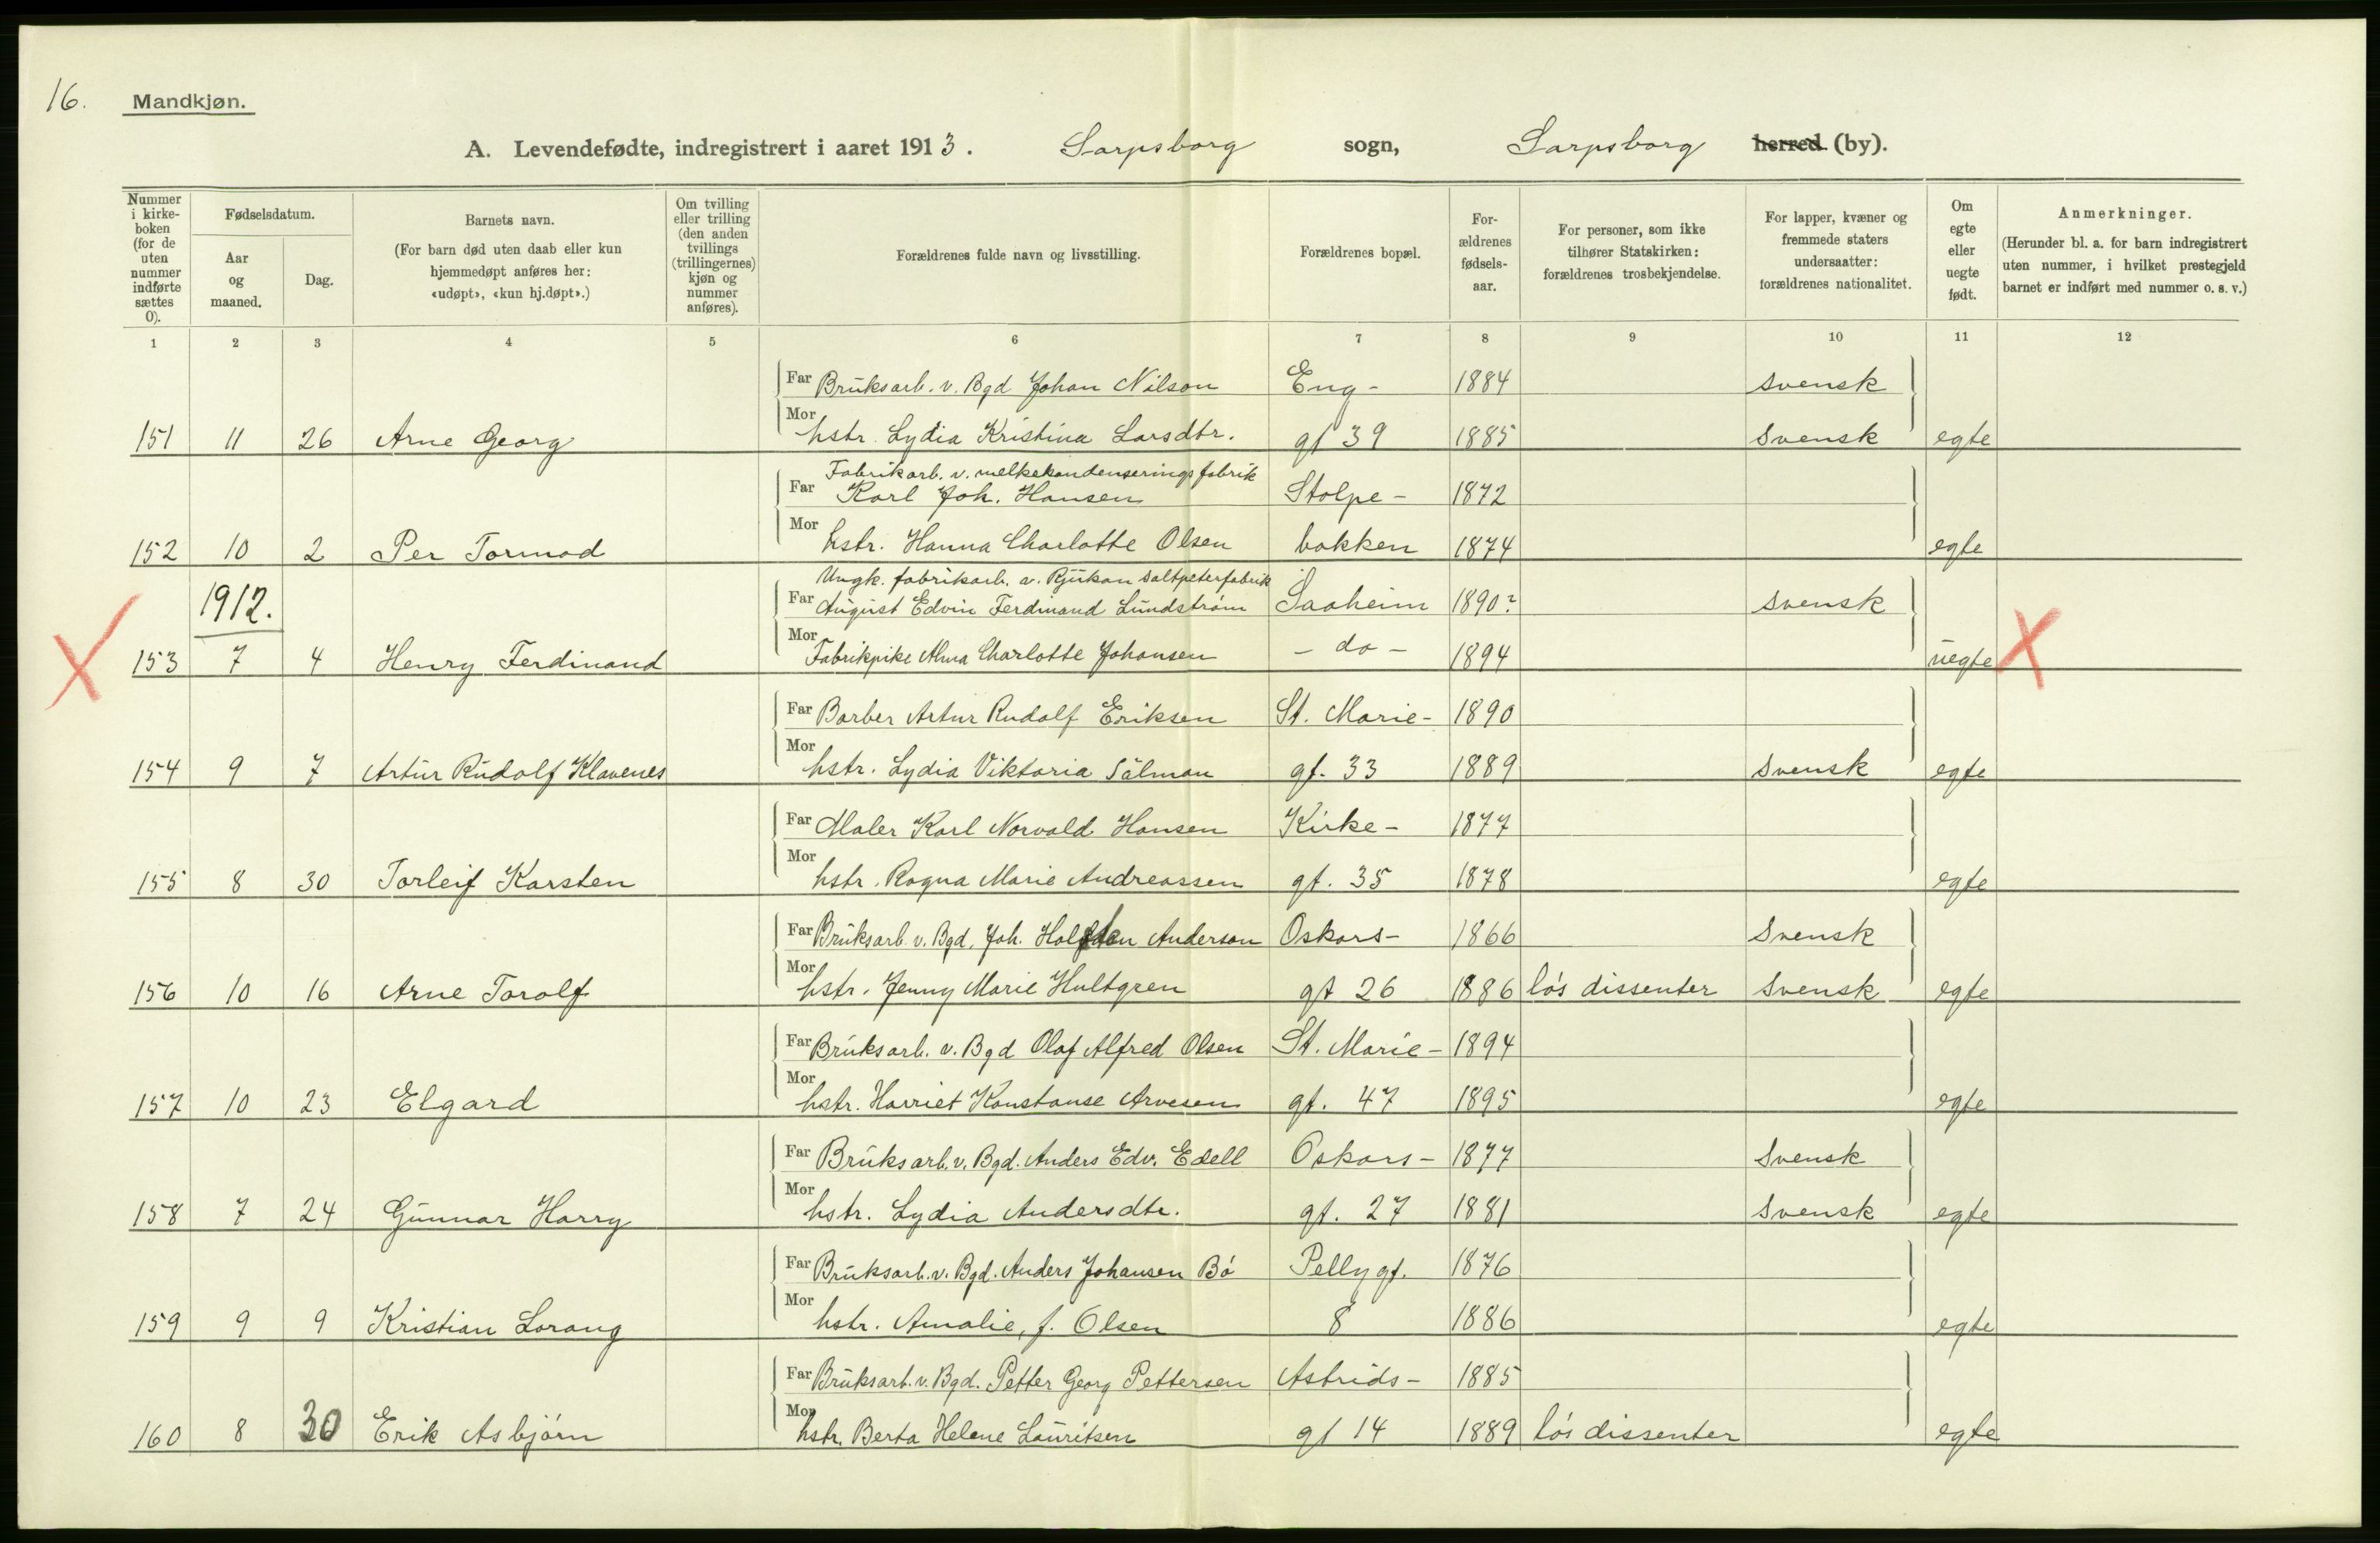 16.
Mandkjøn.
A. Levendefødte, indregistrert i aaret 1913. Sarpsborg sogn, Sarpsborg herred (by).
Nummer i kirke-boken (for de uten nummer indførte sættes 0).
Fødselsdatum.
Aar og maaned.
Dag.
Barnets navn.
(For barn død uten daab eller kun hjemmedøpt anføres her: «udøpt», «kun hj.døpt».)
Om tvilling eller trilling (den anden tvillings (trillingernes) kjøn og nummer anføres).
Forældrenes fulde navn og livsstilling.
Forældrenes bopæl.
For-ældrenes fødsels-aar.
For personer, som ikke tilhører Statskirken: forældrenes trosbekjendelse.
For lapper, kvæner og fremmede staters undersaatter: forældrenes nationalitet.
Om egte eller uegte født.
Anmerkninger.
(Herunder bl. a. for barn indregistrert uten nummer, i hvilket prestegjeld barnet er indført med nummer o. s. v.)
1 2 3 4 5 6 7 8 9 10 11 12
Far Bruksarb. v. Bgd Johan Nilson Eng- 1884 svensk
151 11 26 Arne Georg Mor hstr. Lydia Kristina Larsdtr. gt 39 1885 svensk egte
Fabrikarb. v. melkekondenseringsfabrik
Far Karl Joh. Hansen Stolpe- 1872
152 10 2 Per Tormod Mor hstr. Hanna Charlotte Olsen bakken 1874 egte
Ungk. fabrikarb. v. Rjukan saltpeterfabrik
1912. Far August Edvin Ferdinand Lundstrøm Saaheim 1890? svensk
153 7 4 Henry Ferdinand Mor Fabrikpike Alma Charlotte Johansen - do - 1894 uegte
Far Barber Artur Rudolf Eriksen St. Marie- 1890
154 9 7 Artur Rudolf Klavenes Mor hstr. Lydia Viktoria Sälman gt. 33 1889 svensk egte
Far Maler Karl Norvald Hansen Kirke- 1877
155 8 30 Torleif Karsten Mor hstr. Ragna Marie Andreassen gt. 35 1878 egte
Far Bruksarb. v. Bgd. Joh. Anderson Oskars- 1866 Svensk
156 10 16 Arne Torolf Mor hstr. Jenny Marie Hultgren gt 26 1886 løs dissenter svensk egte
Far Bruksarb. v. Bgd Olaf Alfred Olsen St. Marie- 1894
157 10 23 Elgard Mor hstr. Harriet Konstanse Arvesen gt. 47 1895 egte
Far Bruksarb. v. Bgd. Anders Edv. Edell Oskars- 1877 Svensk
158 7 24 Gunnar Harry Mor hstr. Lydia Andersdtr. gt. 27 1881 Svensk egte
Far Bruksarb. v. Bgd. Anders Johansen Bø Pellygt. 1876
159 9 9 Kristian Lorang Mor hstr. Amalie, f. Olsen 8 1886 egte
Far Bruksarb. v. Bgd. Petter Georg Pettersen Astrids- 1885
160 8 30 Erik Asbjørn Mor hstr. Berta Helene Lauritsen gt 14 1889 løs dissenter egte